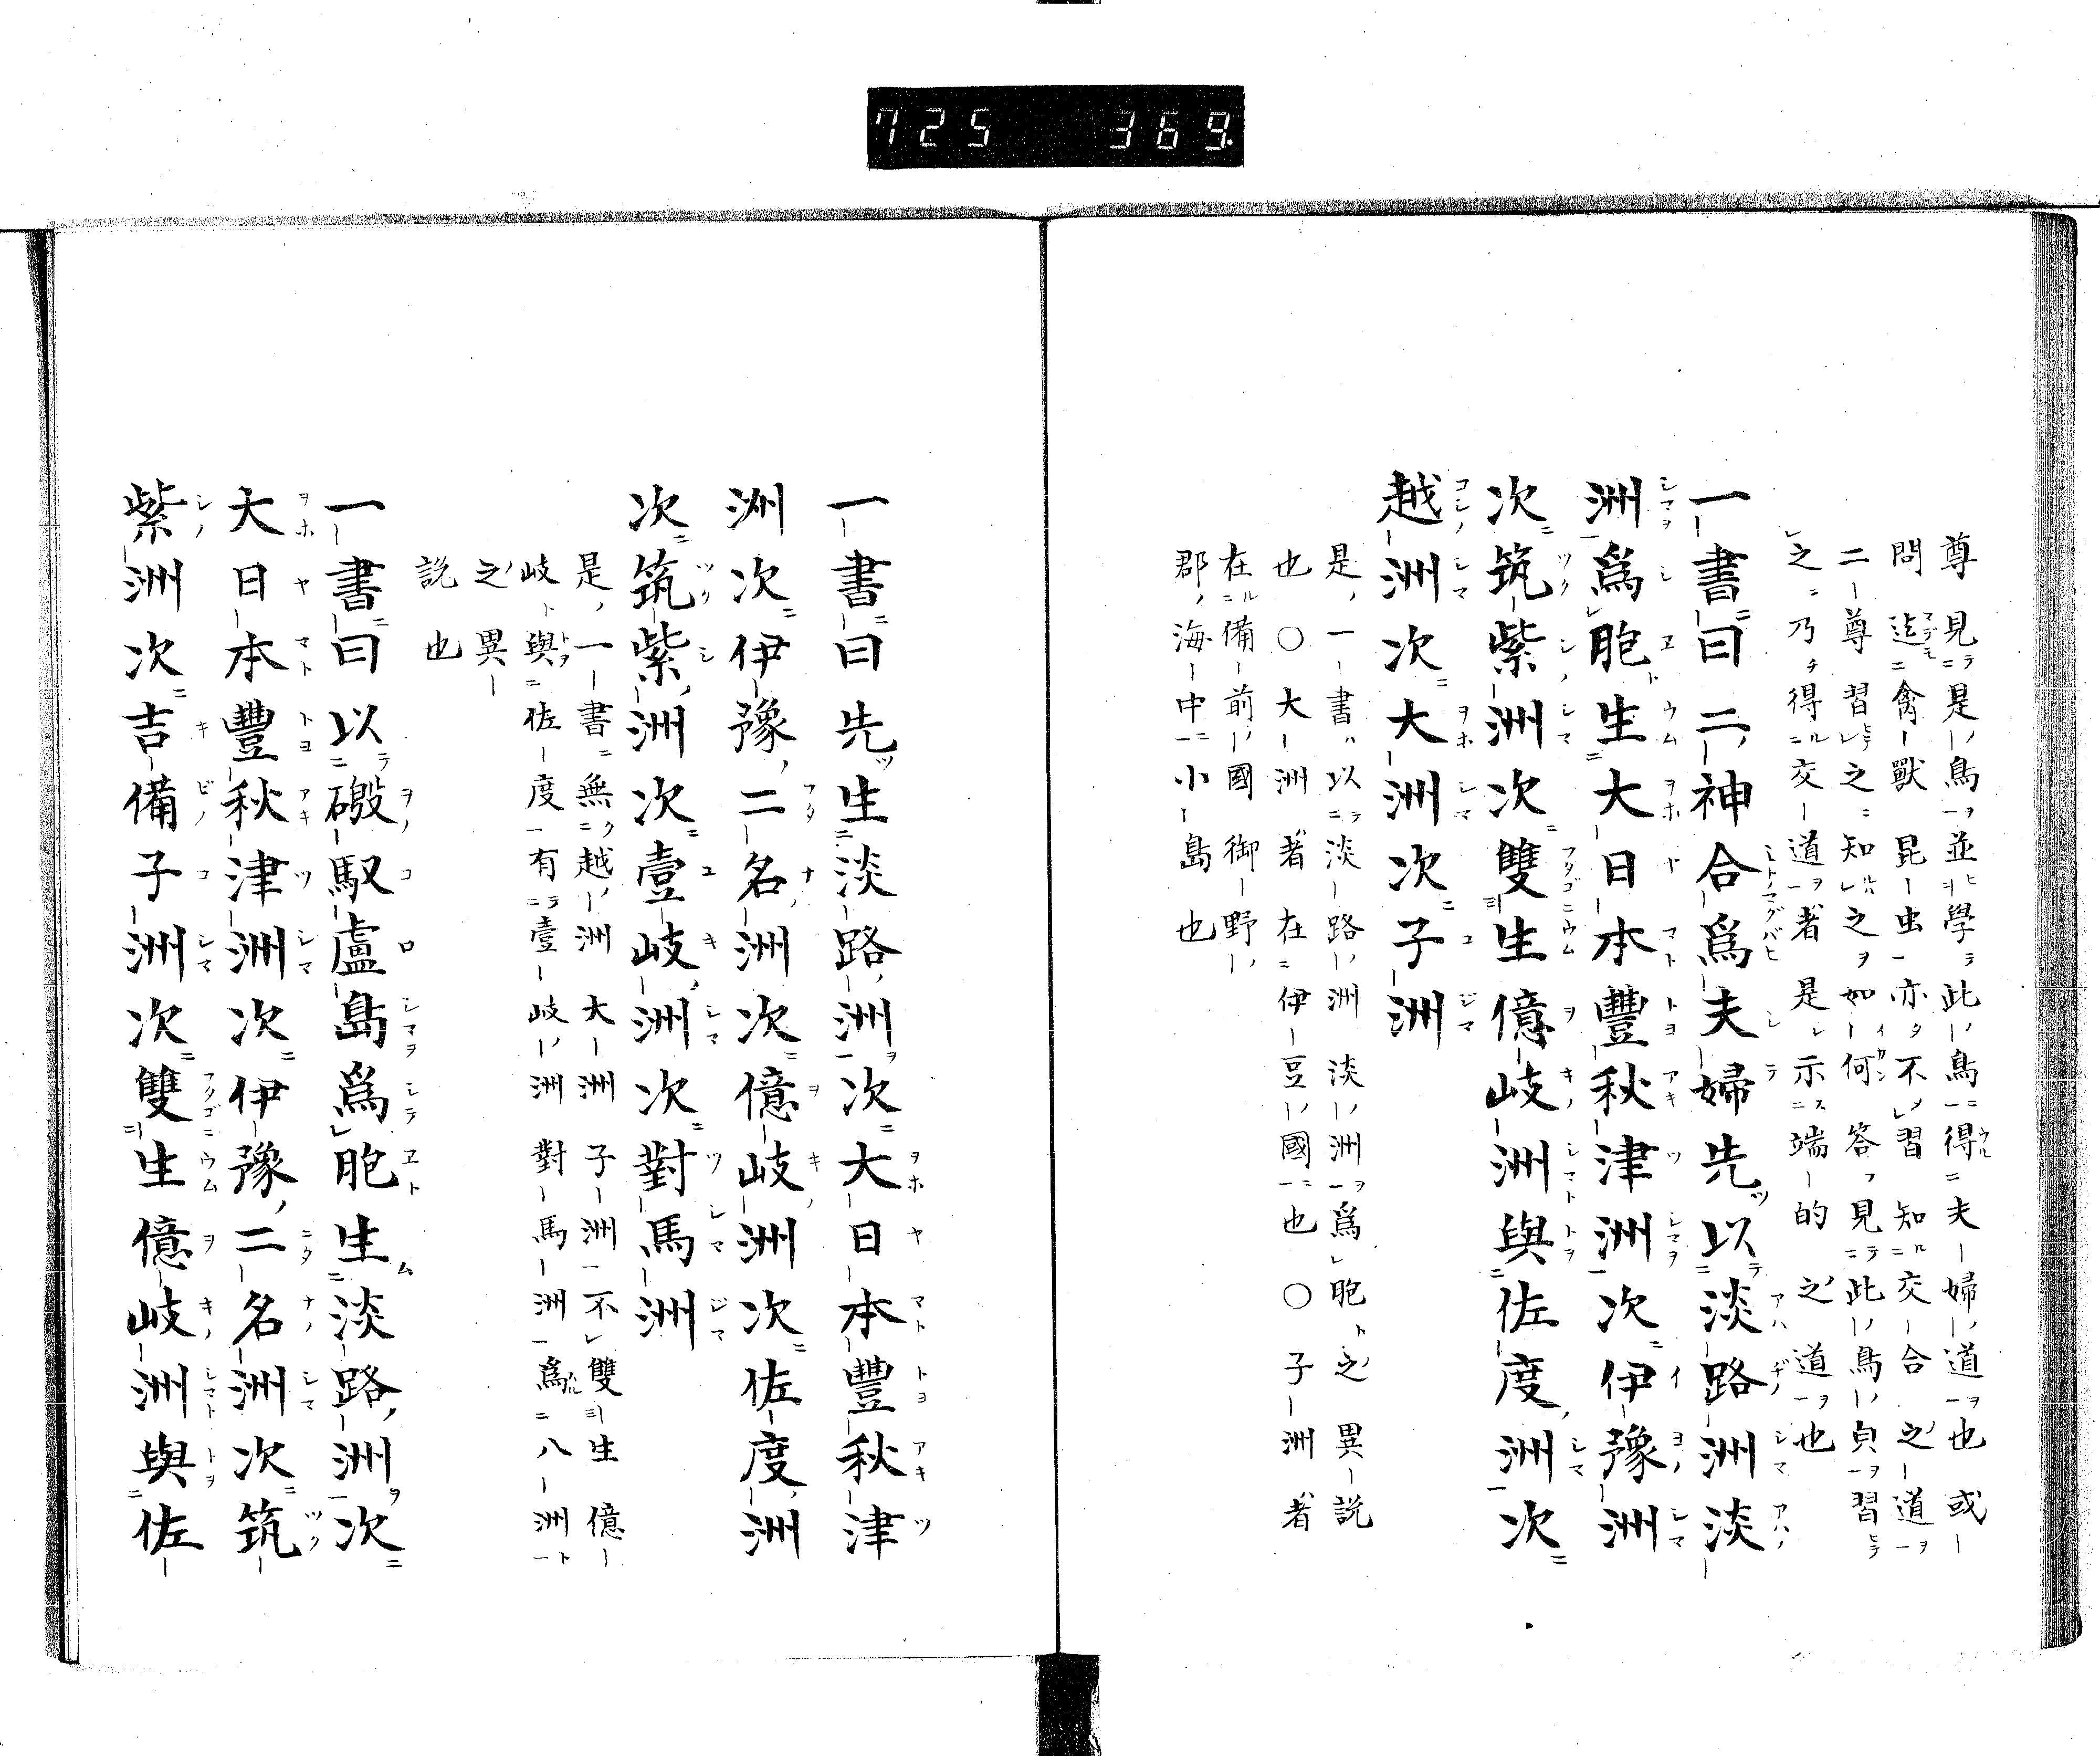 725 369
尊見是鳥並學此鳥得夫婦道也或
問迄禽獸昆虫亦不習知交合之道
二尊習之知之如何答見此鳥貞習
之乃得交道者是示端的之道也
一書曰二神合爲夫婦先以淡路洲淡
洲爲胞生大日本豐秋津洲次伊豫洲
次筑紫洲次雙生億岐洲與佐度洲次
越洲次大洲次子洲
是一書以淡路洲淡洲爲胞之異説
也〇大洲者在伊豆國也〇子洲者
在備前國御野
郡海中小島也
一書曰先生淡路洲次大日本豐秋津
洲次伊豫二名洲次億岐洲次佐度洲
次筑紫洲次壹岐洲次對馬洲
是一書無越洲大洲子洲不雙生億
岐與佐度有壹岐洲對馬洲爲八洲
之異
説也
一書曰以磤馭盧島爲胞生淡路洲次
大日本豐秋津洲次伊豫二名洲次筑
紫洲次吉備子洲次雙生億岐洲與佐